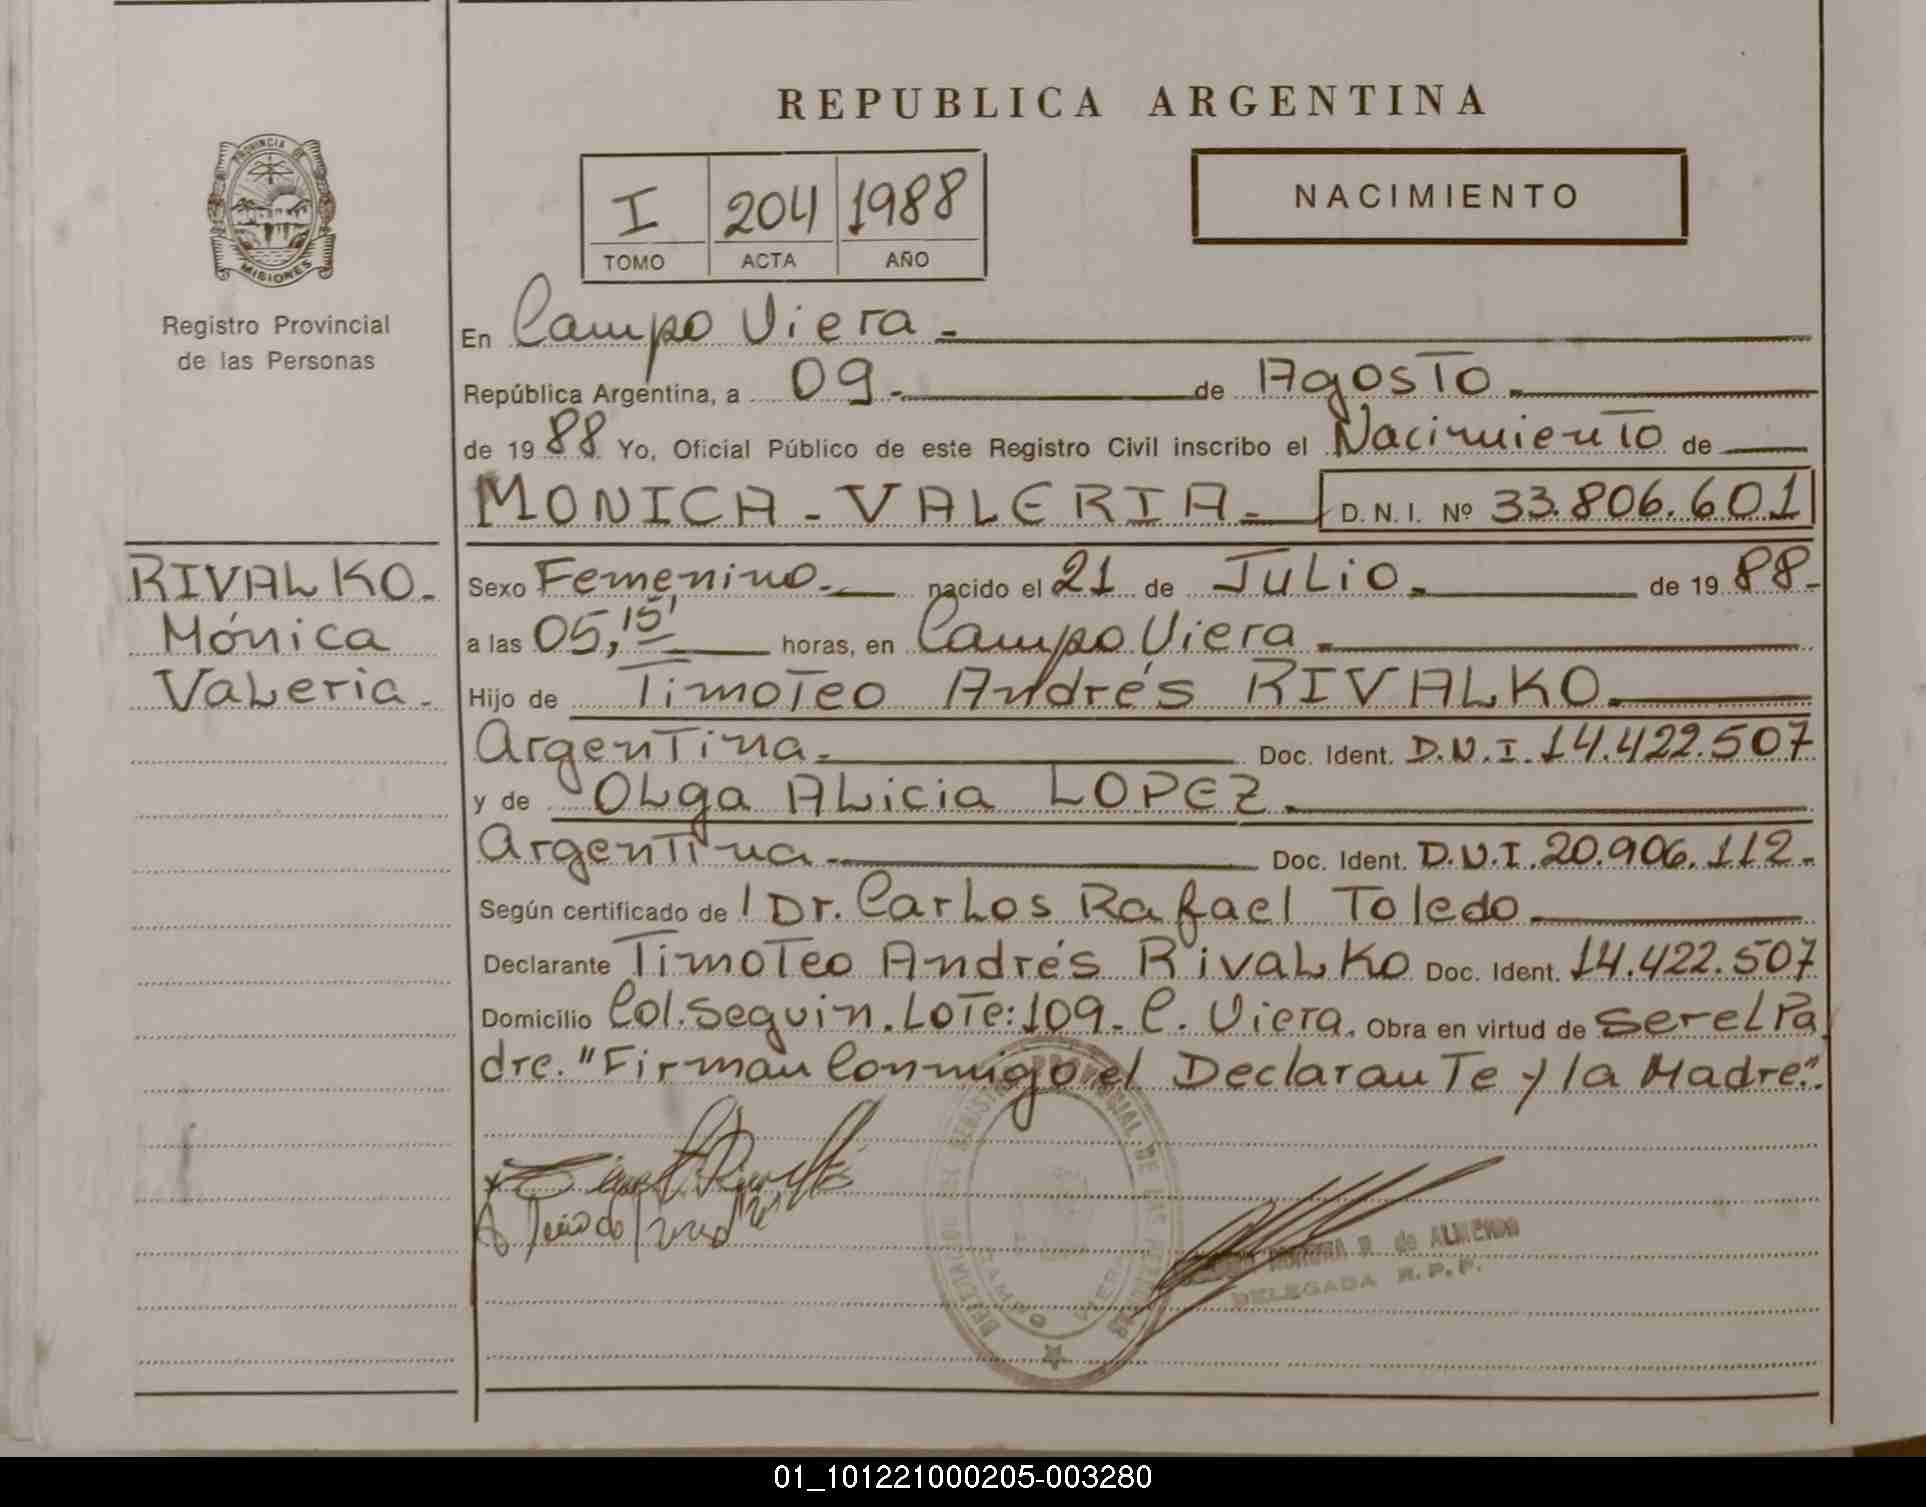 REPUBLICA ARGENTINA
PROVINCIA DE
MISIONES
Registro Provincial
de las Personas
I 204 1988
TOMO ACTA AÑO
NACIMIENTO
En Campo Viera.
República Argentina, a 09. de Agosto.
de 1988 Yo, Oficial Público de este Registro Civil inscribo el Nacimiento de
MONICA - VALERIA. D. N. I. Nº 33.806.601
RIVALKO.
Mónica
Valeria.
Sexo Femenino. nacido el 21 de Julio. de 1988.
a las 05,15' horas, en Campo Viera.
Hijo de Timoteo Andrés RIVALKO.
Argentina. Doc. Ident. D.N.I. 14.422.507
y de Olga Alicia LOPEZ.
Argentina. Doc. Ident. D.N.I. 20.906.112.
Según certificado de Dr. Carlos Rafael Toledo.
Declarante Timoteo Andrés Rivalko Doc. Ident. 14.422.507
Domicilio Col. Seguin. Lote: 109. C. Viera. Obra en virtud de ser el Pa
dre. "Firman Conmigo el Declarante y la Madre".
DE LAS
CAMPO VIERA
de ALMEIDA
DELEGADA R.P.P.
01_101221000205-003280